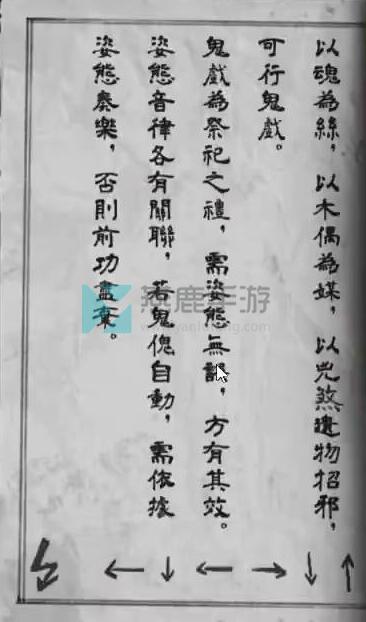 以魂為絲，以木偶為媒，以兇煞遺物招邪，
可行鬼戲。
鬼戲為祭祀之禮，需姿態無誤，方有其效。
姿態音律各有關聯，若鬼傀自動，需依據
姿態奏樂，否則前功盡棄。
↑ ↓ → ← ↓ ←
燕鹿手游